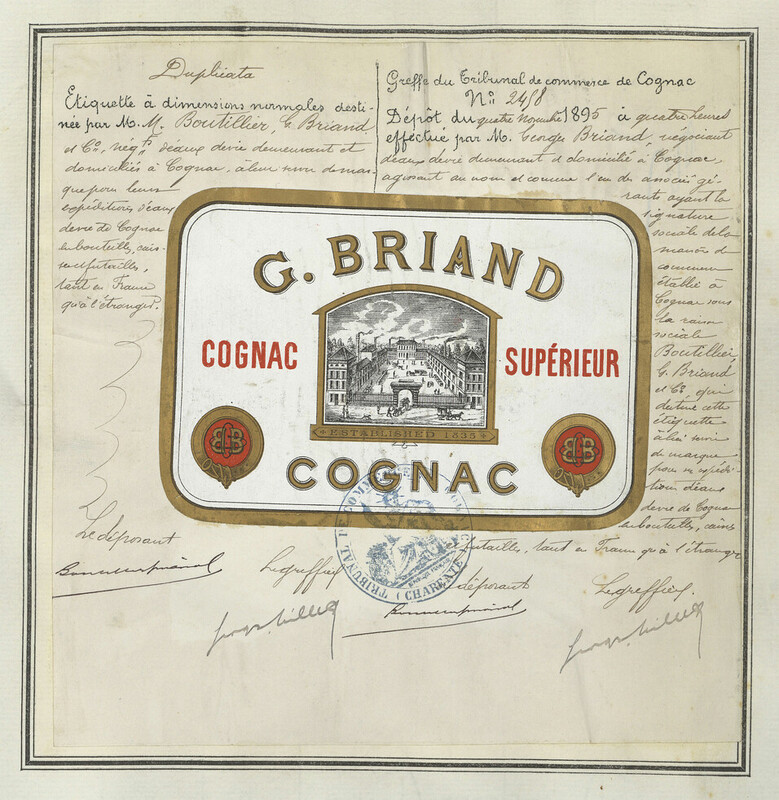 Duplicata
Etiquette à dimensions normales desti-
née par M.M. Boutillier, G. Briand
et Cie, négts d'eaux devie demeurant et
domiciliés à Cognac, à leur servir de mar-
que pour leurs
expéditions d'eaux
devie de Cognac
en bouteilles, cais-
ses et futailles,
tant en France
qu'à l'étranger.
Le déposant
Le greffier
Greffe du Tribunal de commerce de Cognac
No 2418
Dépôt du quatre Novembre 1895 à quatre heures
effectué par M. George Briand, négociant
d'eaux devie demeurant et domicilié à Cognac,
agissant au nom et comme l'un des associés gé-
rants ayant la
signature
sociale de la
maison de
commerce
établie à
Cognac sous
la raison
sociale
Boutillier,
G. Briand
et Cie, qui
destine cette
étiquette
à lui servir
de marque
pour ses expédi-
tions d'eaux
devie de Cognac
en bouteilles, caisses
futailles, tant en France qu'à l'étranger
déposant
Le greffier
G. BRIAND
COGNAC
SUPÉRIEUR
ESTABLISHED 1835
COGNAC
TRIBUNAL DE COMMERCE
(CHARENTE)